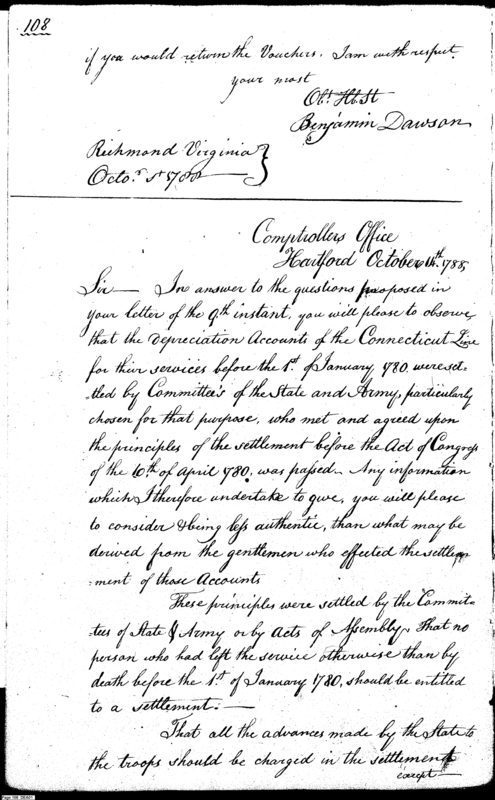 108
if you would return the Vouchers. I am with respect
your most
Obt. Hb. St
Benjamin Dawson
Richmond Virginia
Octor. 1st 1788
Comptrollers Office
Hartford October 14th. 1788,
Sir — In answer to the questions proposed in
your letter of the 9th instant, you will please to observe,
that the depreciation Accounts of the Connecticut Line
for their services before the 1st. of January 1780. were set-
-tled by Committee's of the State and Army, particularly
chosen for that purpose, who met and agreed upon
the principles of the settlement before the Act of Congress
of the 10th of April 1780. was passed. Any information
which I therefore undertake to give, you will please
to consider as being less authentic, than what may be
derived from the gentlemen who effected the settle-
-ment of those Accounts
These principles were settled by the Commit-
tees of State & Army or by Acts of Assembly, That no
person who had left the service otherwise than by
death before the 1st of January 1780, should be entitled
to a settlement. —
That all the advances made by the State to
the troops should be charged in the settlement
except